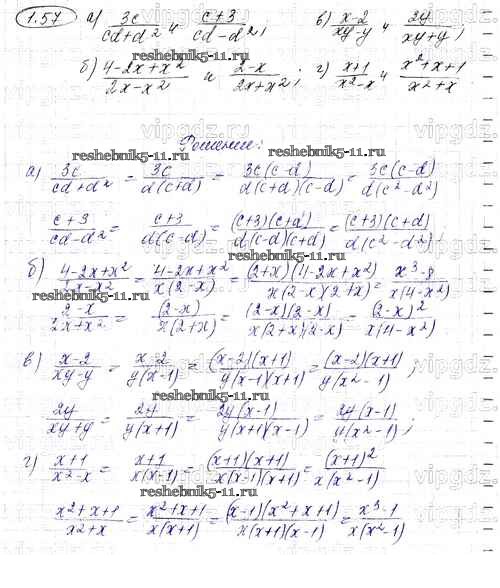 1.57 а) 3c/(cd+d²) и (c+3)/(cd-d²); в) (x-2)/(xy-y) и 2y/(xy+y);
б) (4-2x+x²)/(2x-x²) и (2-x)/(2x+x²); г) (x+1)/(x²-x) и (x²+x+1)/(x²+x)
Решение:
reshebnik5-11.ru
а) 3c/(cd+d²) = 3c/(d(c+d)) = 3c(c-d)/(d(c+d)(c-d)) = 3c(c-d)/(d(c²-d²))
(c+3)/(cd-d²) = (c+3)/(d(c-d)) = (c+3)(c+d)/(d(c-d)(c+d)) = (c+3)(c+d)/(d(c²-d²));
б) (4-2x+x²)/(2x-x²) = (4-2x+x²)/(x(2-x)) = (2+x)(4-2x+x²)/(x(2-x)(2+x)) = (x³-8)/(x(4-x²))
(2-x)/(2x+x²) = (2-x)/(x(2+x)) = (2-x)(2-x)/(x(2+x)(2-x)) = (2-x)²/(x(4-x²))
в) (x-2)/(xy-y) = (x-2)/(y(x-1)) = (x-2)(x+1)/(y(x-1)(x+1)) = (x-2)(x+1)/(y(x²-1));
2y/(xy+y) = 2y/(y(x+1)) = 2y(x-1)/(y(x+1)(x-1)) = 2y(x-1)/(y(x²-1));
г) (x+1)/(x²-x) = (x+1)/(x(x-1)) = (x+1)(x+1)/(x(x-1)(x+1)) = (x+1)²/(x(x²-1))
(x²+x+1)/(x²+x) = (x²+x+1)/(x(x+1)) = (x-1)(x²+x+1)/(x(x+1)(x-1)) = (x³-1)/(x(x²-1))